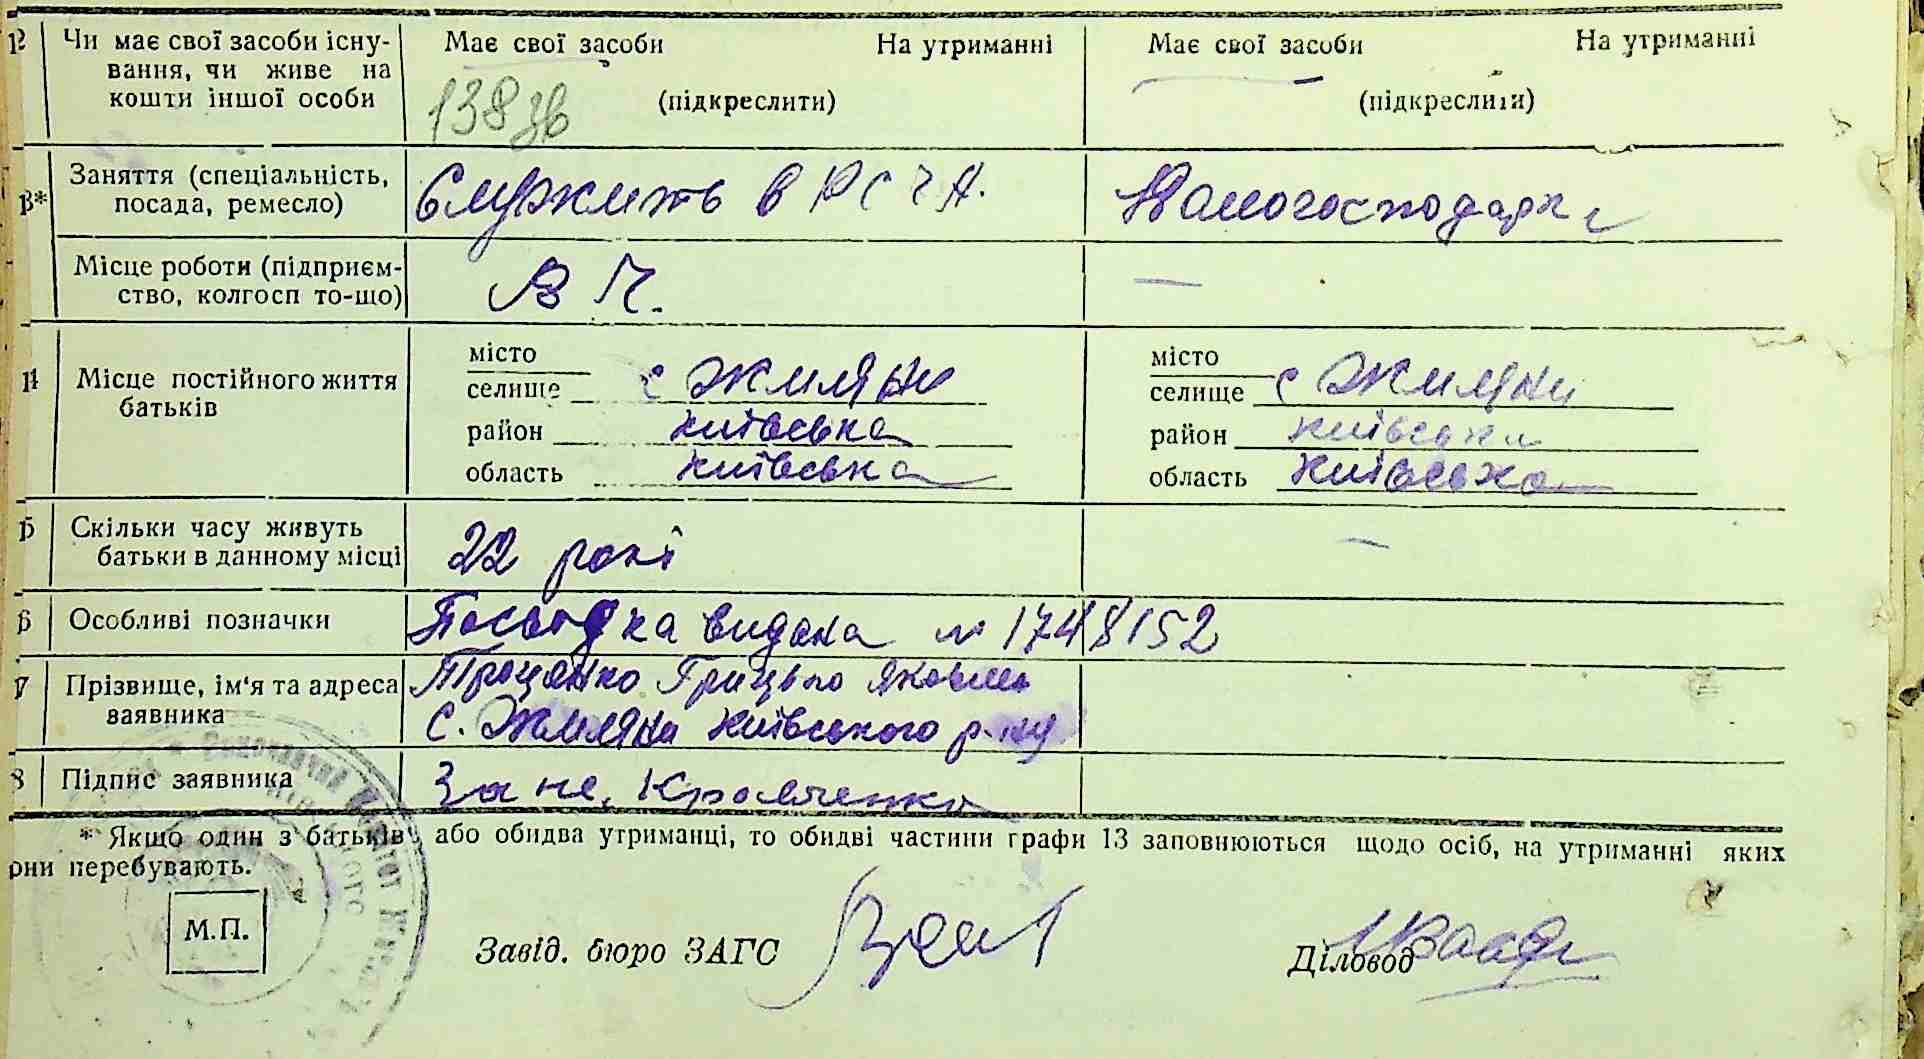 12 Чи має свої засоби існу- Має свої засоби На утриманні Має свої засоби На утриманні
вання, чи живе на
кошти іншої особи 138 зв (підкреслити) (підкреслити)
13* Заняття (спеціальність, Служить в РСЧА. Домогосподарка
посада, ремесло)
Місце роботи (підприєм- В Ч. —
ство, колгосп то-що)
місто місто
14 Місце постійного життя селище с Жиляни селище с Жиляни
батьків район київська район київська
область київська область київська
15 Скільки часу живуть 22 рокі —
батьки в данному місці
16 Особливі позначки Посвідка видана № 1748152
17 Прізвище, ім'я та адреса Троценко Грицько
заявника с. Жиляни київського р-ну
18 Підпис заявника За не. Кравченко
* Якщо один з батьків або обидва утриманці, то обидві частини графи 13 заповнюються щодо осіб, на утриманні яких
они перебувають.
М.П. Завід. бюро ЗАГС Діловод